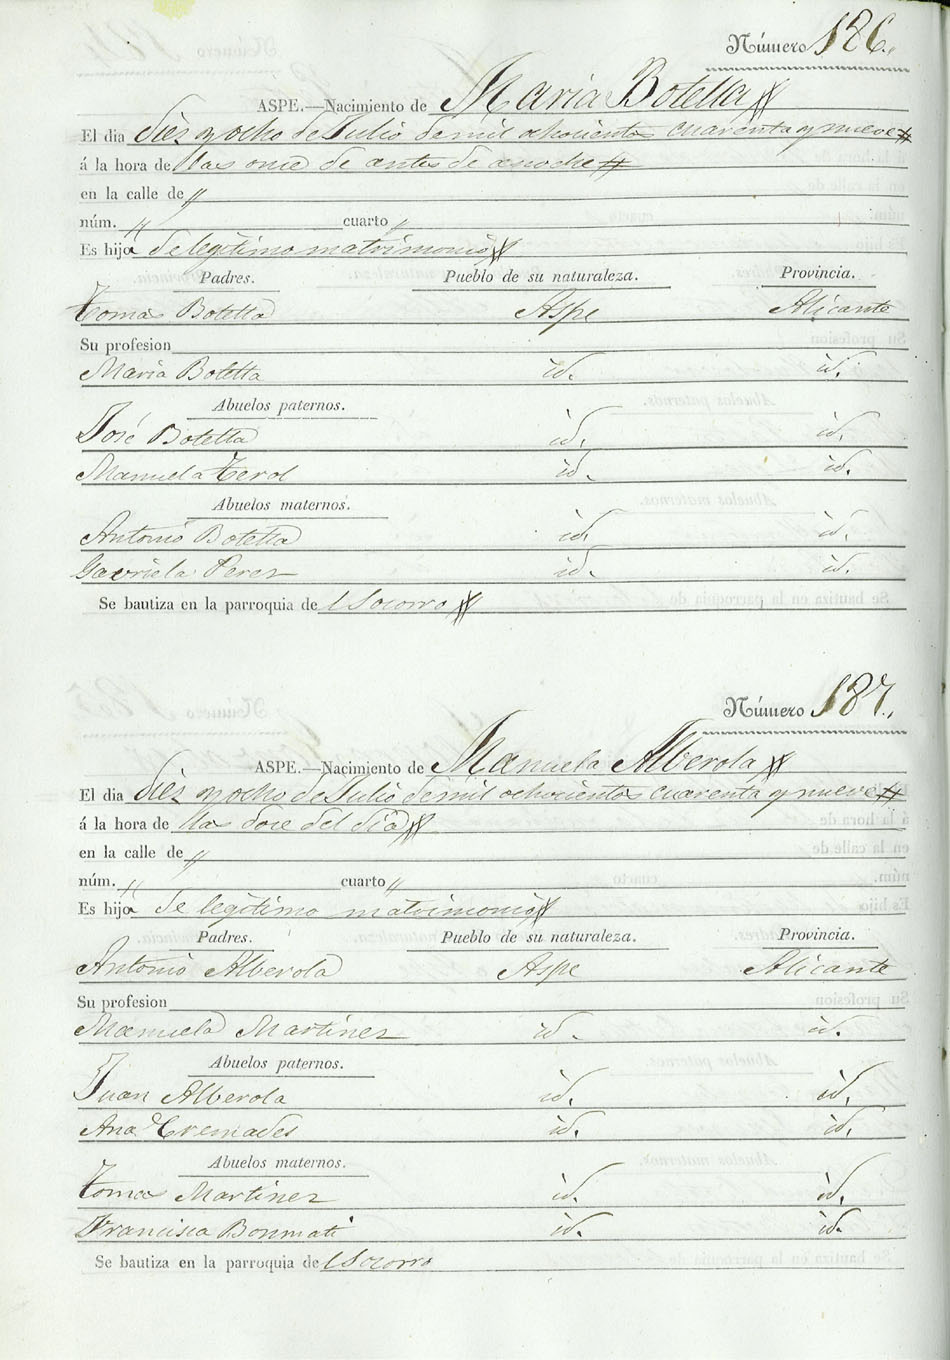 Número 186.
ASPE.—Nacimiento de Maria Botella
El dia dies y ocho de Julio de mil ochocientos cuarenta y nueve
á la hora de las once de antes de anoche
en la calle de "
núm. " cuarto "
Es hija de legitimo matrimonio
Padres. Pueblo de su naturaleza. Provincia.
Tomas Botella Aspe Alicante
Su profesion
Maria Botella id. id.
Abuelos paternos.
José Botella id. id.
Manuela Terol id. id.
Abuelos maternos.
Antonio Botella id. id.
Gavriela Perez id. id.
Se bautiza en la parroquia del Socorro
Número 187.
ASPE.—Nacimiento de Manuela Alberola
El dia dies y ocho de Julio de mil ochocientos cuarenta y nueve
á la hora de las doce del dia
en la calle de "
núm. " cuarto "
Es hija de legitimo matrimonio
Padres. Pueblo de su naturaleza. Provincia.
Antonio Alberola Aspe Alicante
Su profesion
Manuela Martinez id. id.
Abuelos paternos.
Juan Alberola id. id.
Ana Cremades id. id.
Abuelos maternos.
Tomas Martinez id. id.
Francisca Bonmati id. id.
Se bautiza en la parroquia del Socorro